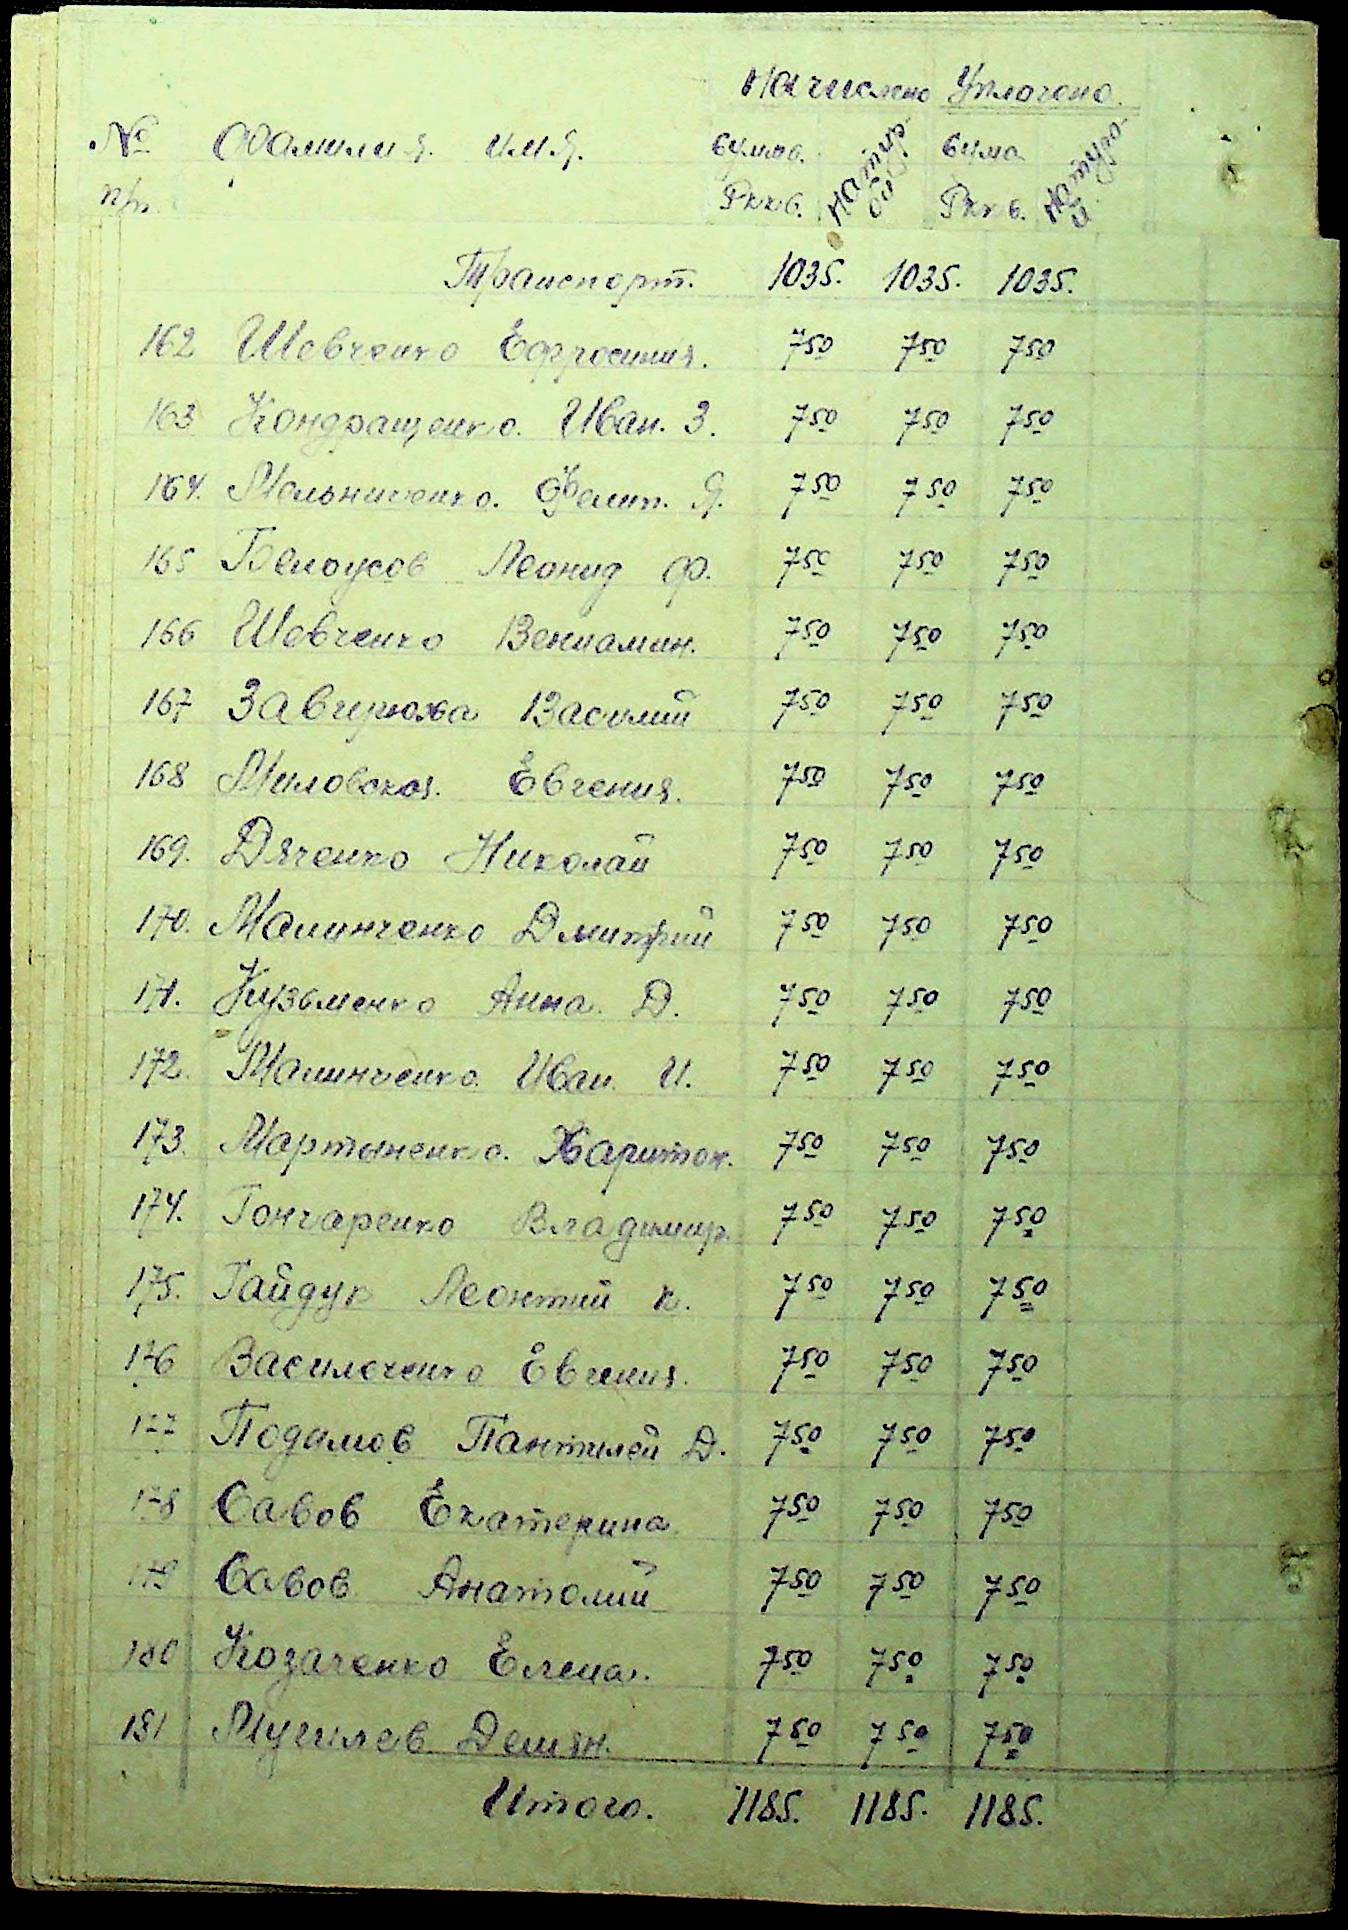 Начислено Уплочено.
№ Фамилия. имя. бумаж. бума
п/п. Рккв. Рккв.
Транспорт. 1035. 1035. 1035.
162 Шевченко Ефросиния. 7 50 7 50 7 50
163 Кондращенко. Иван. З. 7 50 7 50 7 50
164. Мельниченко. Филип. Я. 7 50 7 50 7 50
165 Белоусов Леонид Ф. 7 50 7 50 7 50
166 Шевченко Вениамин. 7 50 7 50 7 50
167 Завирюха Василий 7 50 7 50 7 50
168 Миловская. Евгения. 7 50 7 50 7 50
169. Дяченко Николай 7 50 7 50 7 50
170. Малинченко Дмитрий 7 50 7 50 7 50
171. Кузьменко Анна. Д. 7 50 7 50 7 50
172. Малинченко. Иван. И. 7 50 7 50 7 50
173. Мартыненко. Харитон. 7 50 7 50 7 50
174. Гончаренко Владимир. 7 50 7 50 7 50
175. Гайдук Леонтий К. 7 50 7 50 7 50
176 Василоченко Евгения. 7 50 7 50 7 50
177 Подамов Пантилей Д. 7 50 7 50 7 50
178 Савов Екатерина 7 50 7 50 7 50
179 Савов Анатолий 7 50 7 50 7 50
180 Козаченко Елена. 7 50 7 50 7 50
181 Мугилев Демян. 7 50 7 50 7 50
Итого. 1185. 1185. 1185.